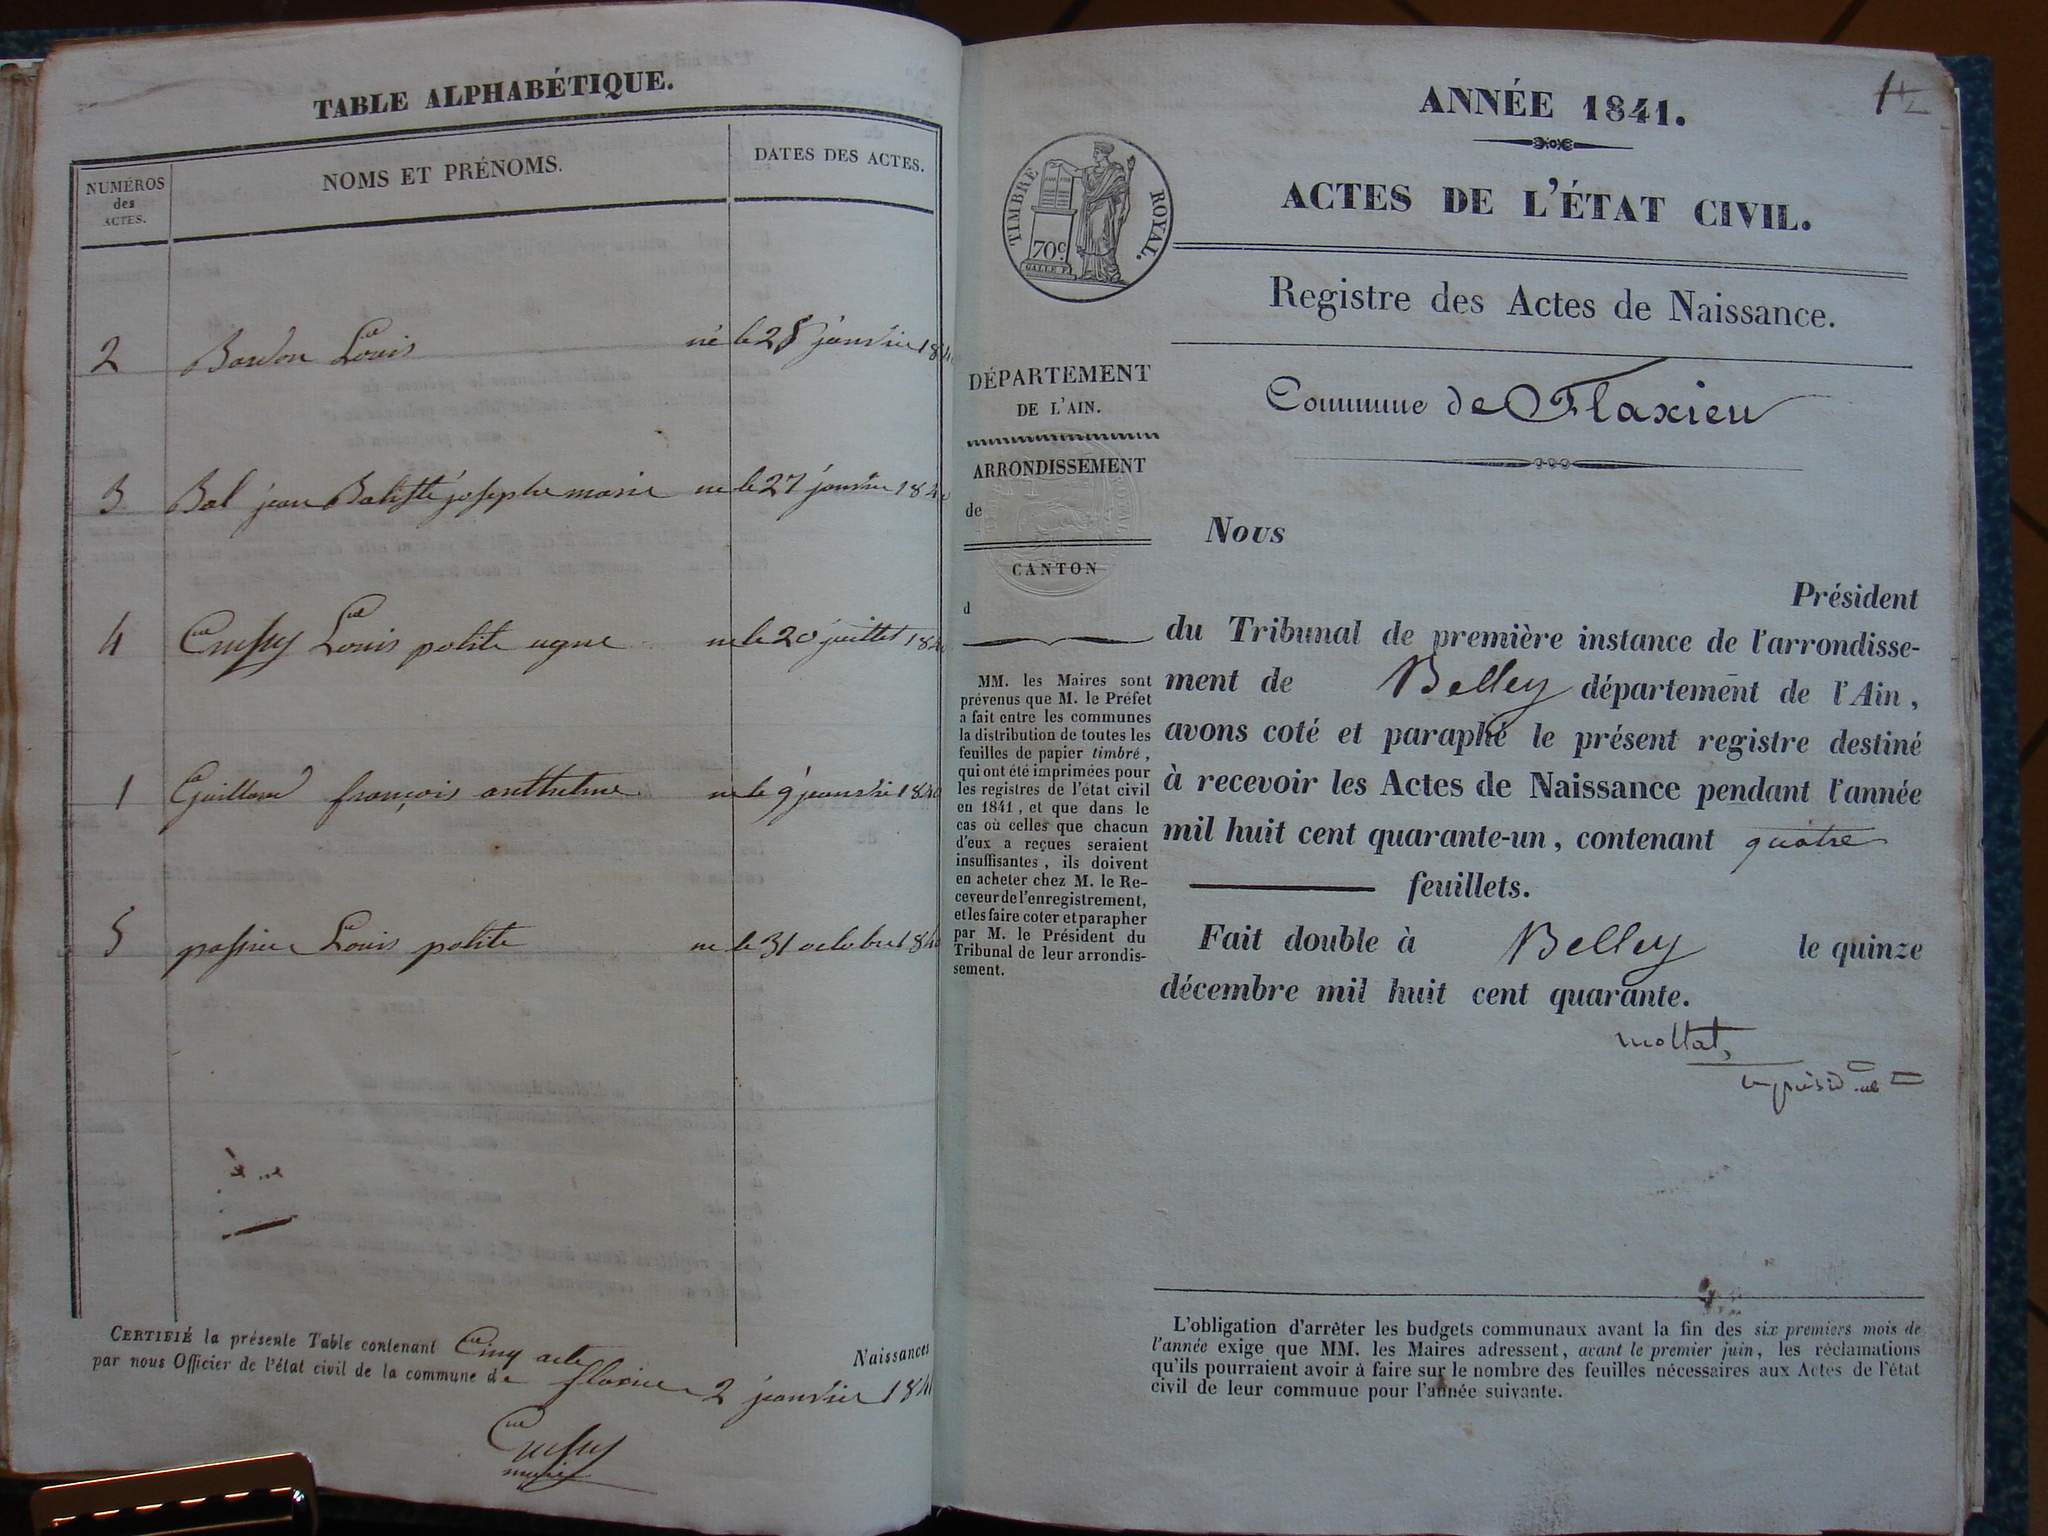 TABLE ALPHABÉTIQUE.
NUMÉROS
des
ACTES.
NOMS ET PRÉNOMS.
DATES DES ACTES.
2 Louis né le 28 janvier 1840
3 Bal jean Batiste josephe marie ne le 27 janvier 1840
4 Cussy Louis polite ne le 20 juillet 1840
1 Guilland françois anthelme ne le 9 janvier 1840
5 Louis polite ne le 31 octobre 1840
CERTIFIÉ la présente Table contenant Cinq acte Naissances
par nous Officier de l'état civil de la commune de flaxieu 2 janvier 1841
Cussy
maire
1
ANNÉE 1841.
ACTES DE L'ÉTAT CIVIL.
TIMBRE ROYAL.
70c.
GALLE F.
Registre des Actes de Naissance.
Commune de Flaxieu
DÉPARTEMENT
DE L'AIN.
ARRONDISSEMENT
de
CANTON
d
MM. les Maires sont
prévenus que M. le Préfet
a fait entre les communes
la distribution de toutes les
feuilles de papier timbré,
qui ont été imprimées pour
les registres de l'état civil
en 1841, et que dans le
cas où celles que chacun
d'eux a reçues seraient
insuffisantes, ils doivent
en acheter chez M. le Re-
ceveur de l'enregistrement,
et les faire coter et parapher
par M. le Président du
Tribunal de leur arrondis-
sement.
Nous
Président
du Tribunal de première instance de l'arrondisse-
ment de Belley département de l'Ain,
avons coté et paraphé le présent registre destiné
à recevoir les Actes de Naissance pendant l'année
mil huit cent quarante-un, contenant quatre
feuillets.
Fait double à Belley le quinze
décembre mil huit cent quarante.
mollat,
L'obligation d'arrêter les budgets communaux avant la fin des six premiers mois de
l'année exige que MM. les Maires adressent, avant le premier juin, les réclamations
qu'ils pourraient avoir à faire sur le nombre des feuilles nécessaires aux Actes de l'état
civil de leur commune pour l'année suivante.